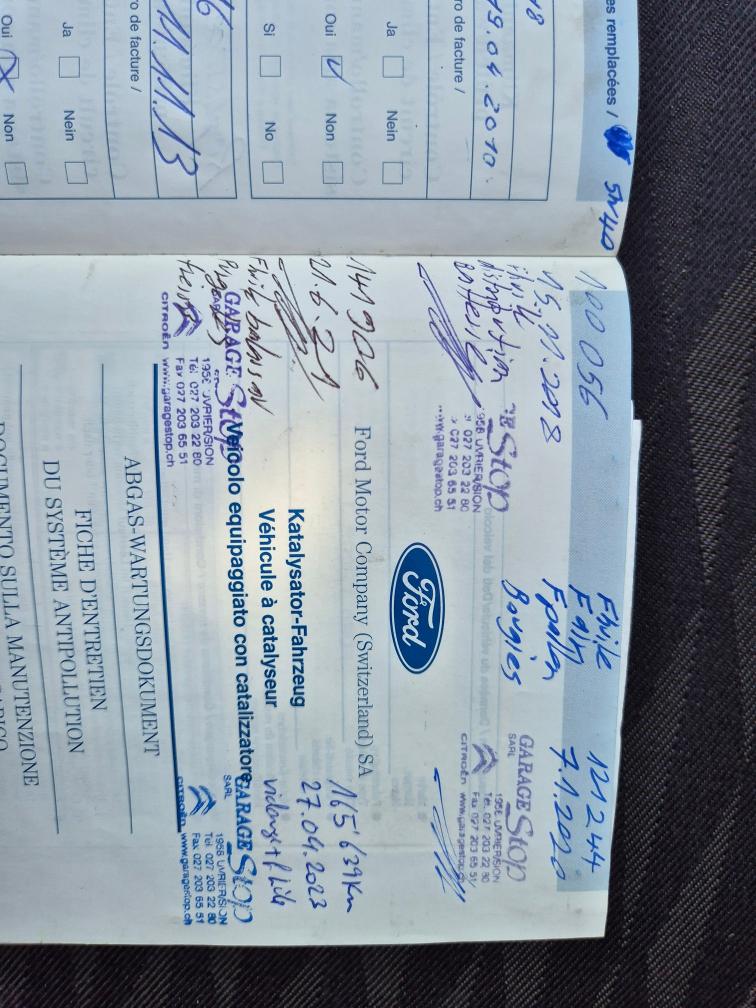 es remplacées /
5W40
18
19.04.2010
ro de facture /
Ja
Nein
Oui
Non
Si
No
16
11.11.13
ro de facture /
Ja
Nein
Oui
Non
100 056
15.11.2018
distribution
Stop
1958 UVRIER/SION
027 203 22 80
027 203 65 51
www.garagestop.ch
Bougies
121244
7.1.2020
GARAGE Stop
SARL
1958 UVRIER/SION
Tél. 027 203 22 80
Fax 027 203 65 51
CITROËN www.garagestop.ch
Ford
Ford Motor Company (Switzerland) SA
141906
21.6.21
GARAGE Stop
SARL
1958 UVRIER/SION
Tél. 027 203 22 80
Fax 027 203 65 51
CITROËN www.garagestop.ch
Katalysator-Fahrzeug
Véhicule à catalyseur
Veicolo equipaggiato con catalizzatore
165'639 Km
27.04.2023
vidange +
GARAGE Stop
SARL
1958 UVRIER/SION
Tél. 027 203 22 80
Fax 027 203 65 51
CITROËN www.garagestop.ch
ABGAS-WARTUNGSDOKUMENT
FICHE D'ENTRETIEN
DU SYSTÈME ANTIPOLLUTION
DOCUMENTO SULLA MANUTENZIONE